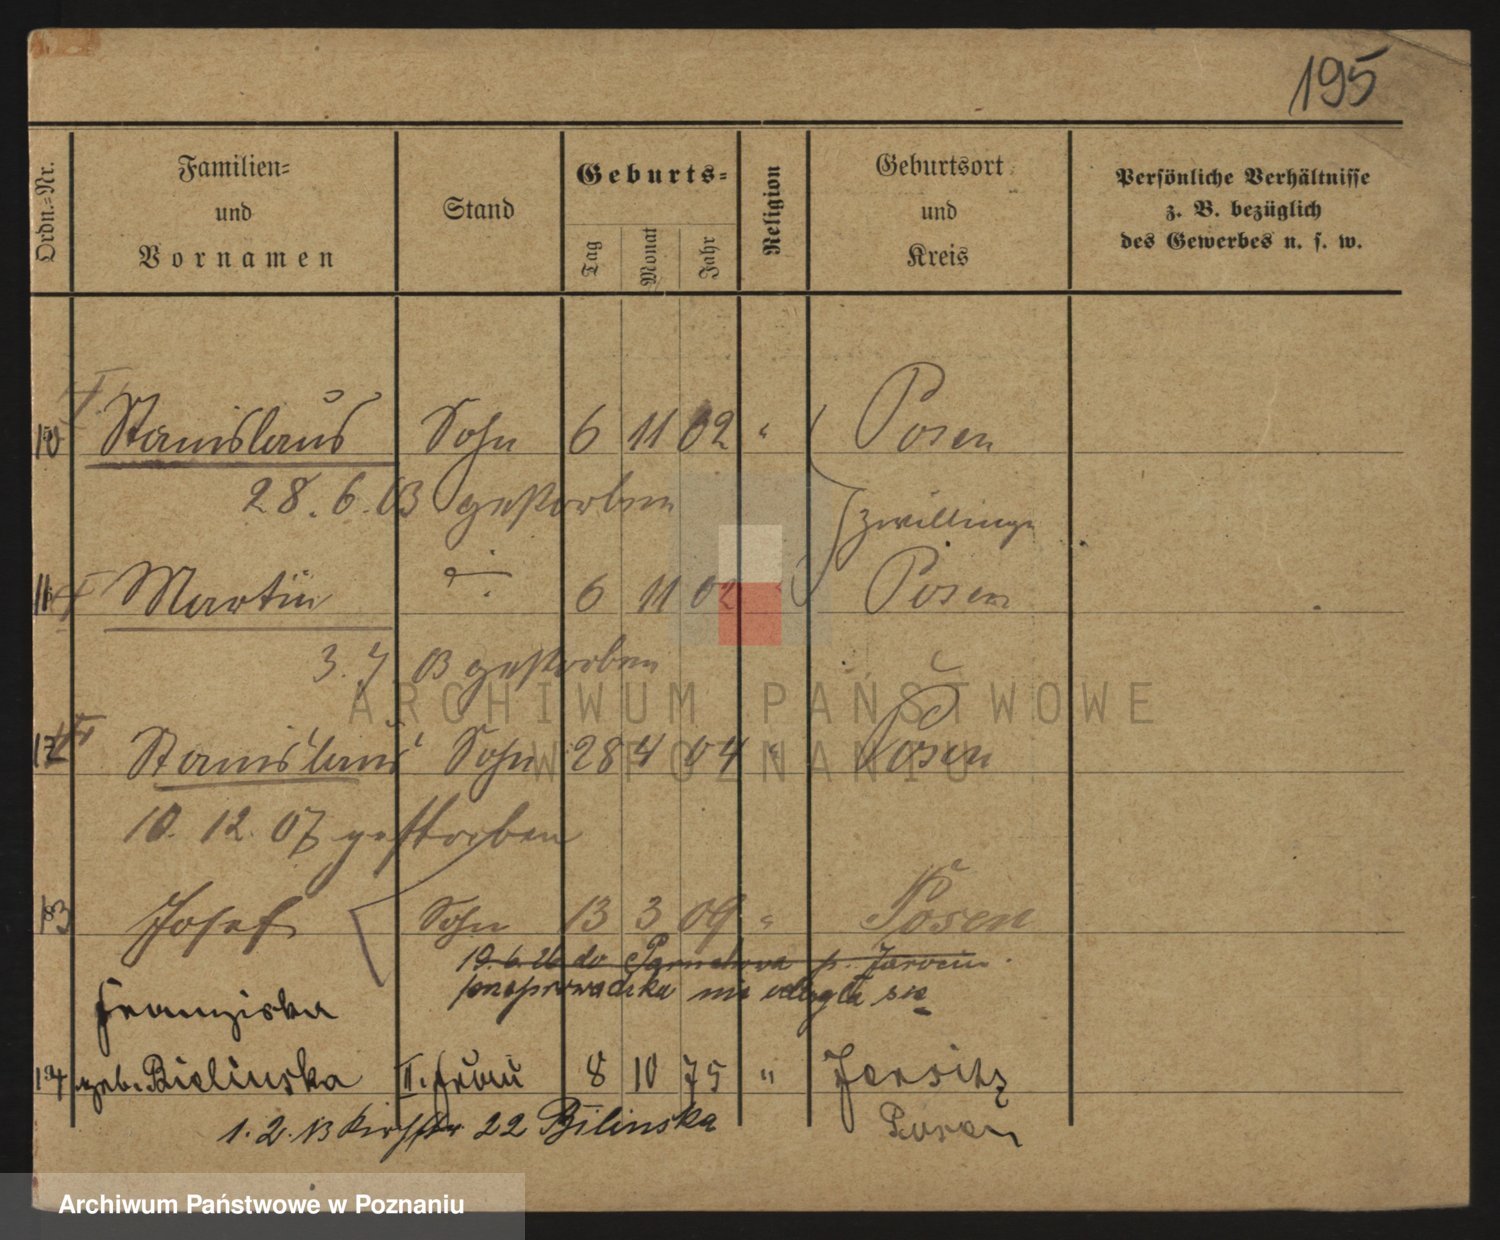 195
Ordn.-Nr.
Familien-
und
Vornamen
Stand
Geburts-
Tag
Monat
Jahr
Religion
Geburtsort
und
Kreis
Persönliche Verhältnisse
z. B. bezüglich
des Gewerbes u. s. w.
10 I Stanislaus Sohn 6 11 02 " Posen
28. 6. 03 gestorben
Zwillinge
11 Martin 6 11 02 Posen
3. 7 03 gestorben
12 Stanislaus Sohn 28 4 04 " Posen
10. 12. 07 gestorben
13 Josef Sohn 13 3 09 " Posen
19. 6. 26 do p. Jarocin
przeprowadzka nie odbyła się
Franziska
14 geb. Bielinska II. Frau 8 10 75 " Jersitz
1. 2. 13 22 Bilinska Posen
ARCHIWUM PAŃSTWOWE
W POZNANIU
Archiwum Państwowe w Poznaniu